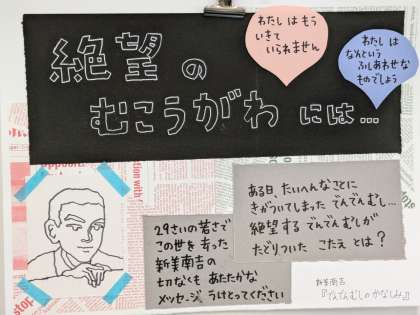 絶望の
むこうがわには…
わたしはもう
いきて
いられません
わたしは
なんという
ふしあわせな
ものでしょう
29さいの若さで
この世を去った
新美南吉の
切なくも あたたかな
メッセージ うけとってください
ある日、たいへんなことに
きがついてしまった でんでんむし…
絶望する でんでんむしが
たどりついた こたえ とは？
新美南吉
『でんでんむしのかなしみ』